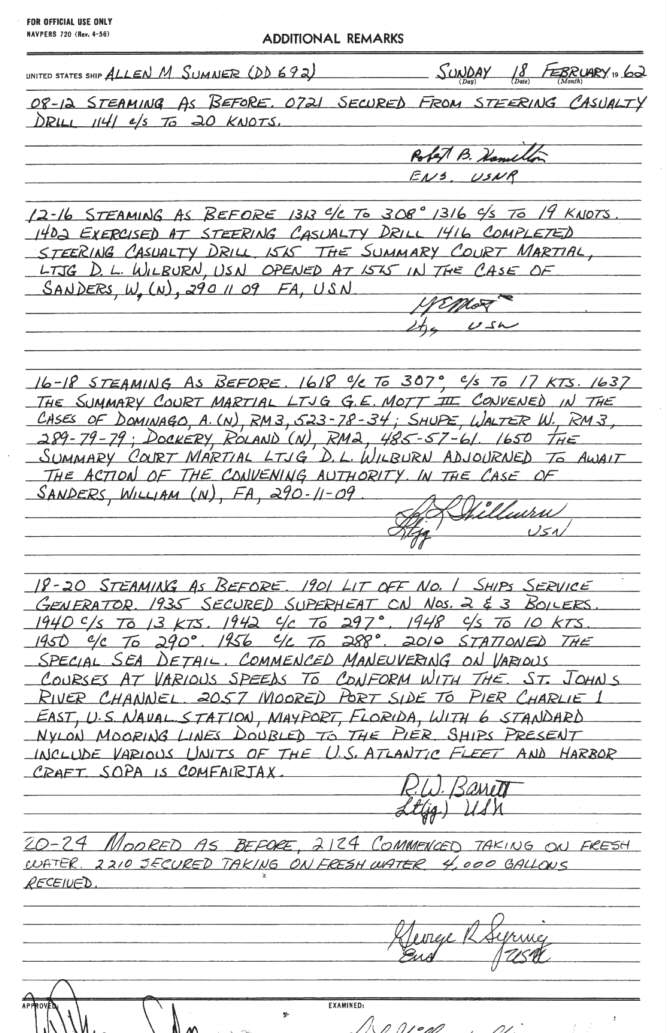 FOR OFFICIAL USE ONLY
NAVPERS 720 (Rev. 4-56)
ADDITIONAL REMARKS
UNITED STATES SHIP ALLEN M SUMNER (DD 692) SUNDAY 18 FEBRUARY 19 62
(Day) (Date) (Month)
08-12 STEAMING AS BEFORE. 0721 SECURED FROM STEERING CASUALTY
DRILL 1141 c/s TO 20 KNOTS.
Robert B. Hamilton
ENS. USNR
12-16 STEAMING AS BEFORE 1313 c/c TO 308° 1316 c/s TO 19 KNOTS.
1402 EXERCISED AT STEERING CASUALTY DRILL 1416 COMPLETED
STEERING CASUALTY DRILL. 1515 THE SUMMARY COURT MARTIAL,
LTJG D. L. WILBURN, USN OPENED AT 1515 IN THE CASE OF
SANDERS, W, (N), 290 11 09 FA, USN
GEMott
Ltjg USN
16-18 STEAMING AS BEFORE. 1618 c/c TO 307°, c/s TO 17 KTS. 1637
THE SUMMARY COURT MARTIAL LTJG G.E. MOTT III CONVENED IN THE
CASES OF DOMINAGO, A. (N), RM3, 523-78-34; SHUPE, WALTER W., RM3,
289-79-79; DOCKERY, ROLAND (N), RM2, 485-57-61. 1650 THE
SUMMARY COURT MARTIAL LTJG D.L. WILBURN ADJOURNED TO AWAIT
THE ACTION OF THE CONVENING AUTHORITY. IN THE CASE OF
SANDERS, WILLIAM (N), FA, 290-11-09.
D L Wilburn
Ltjg USN
18-20 STEAMING AS BEFORE. 1901 LIT OFF NO. 1 SHIPS SERVICE
GENERATOR. 1935 SECURED SUPERHEAT ON NOS. 2 & 3 BOILERS.
1940 c/s TO 13 KTS. 1942 c/c TO 297°. 1948 c/s TO 10 KTS.
1950 c/c TO 290°. 1956 c/c TO 288°. 2010 STATIONED THE
SPECIAL SEA DETAIL. COMMENCED MANEUVERING ON VARIOUS
COURSES AT VARIOUS SPEEDS TO CONFORM WITH THE ST. JOHNS
RIVER CHANNEL. 2057 MOORED PORT SIDE TO PIER CHARLIE 1
EAST, U.S. NAVAL STATION, MAYPORT, FLORIDA, WITH 6 STANDARD
NYLON MOORING LINES DOUBLED TO THE PIER. SHIPS PRESENT
INCLUDE VARIOUS UNITS OF THE U.S. ATLANTIC FLEET AND HARBOR
CRAFT. SOPA IS COMFAIRJAX.
R.W. Barrett
Lt(jg) USN
20-24 MOORED AS BEFORE, 2124 COMMENCED TAKING ON FRESH
WATER. 2210 SECURED TAKING ON FRESH WATER 4,000 GALLONS
RECEIVED.
George R Syring
Ens USN
APPROVED: EXAMINED: